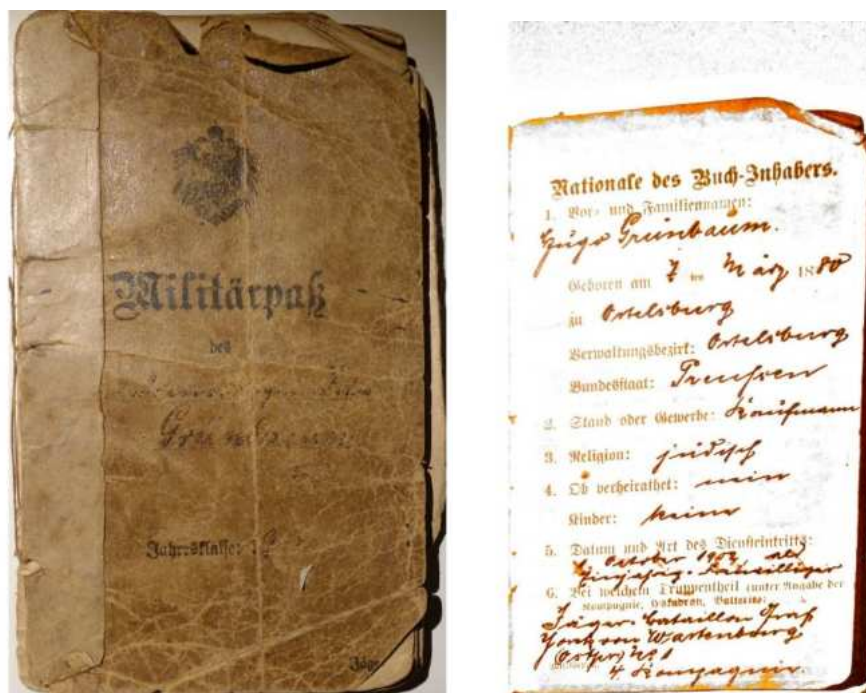 Militärpaß
des
Grünbaum
Jahresklasse: 19
Jäge
Nationale des Buch-Inhabers.
1. Vor- und Familiennamen:
Hugo Grünbaum.
Geboren am 7 ten März 1880
zu Ortelsburg
Verwaltungsbezirk: Ortelsburg
Bundesstaat: Preussen
2. Stand oder Gewerbe: Kaufmann
3. Religion: jüdisch
4. Ob verheirathet: nein
Kinder: keine
5. Datum und Art des Diensteintritts:
October als
Einjährig-Freiwilliger
6. Bei welchem Truppentheil (unter Angabe der
Kompagnie, Eskadron, Batterie:
Jäger-Bataillon Graf
Yorck von Wartenburg
(Ostpr) No. 1
4. Kompagnie.